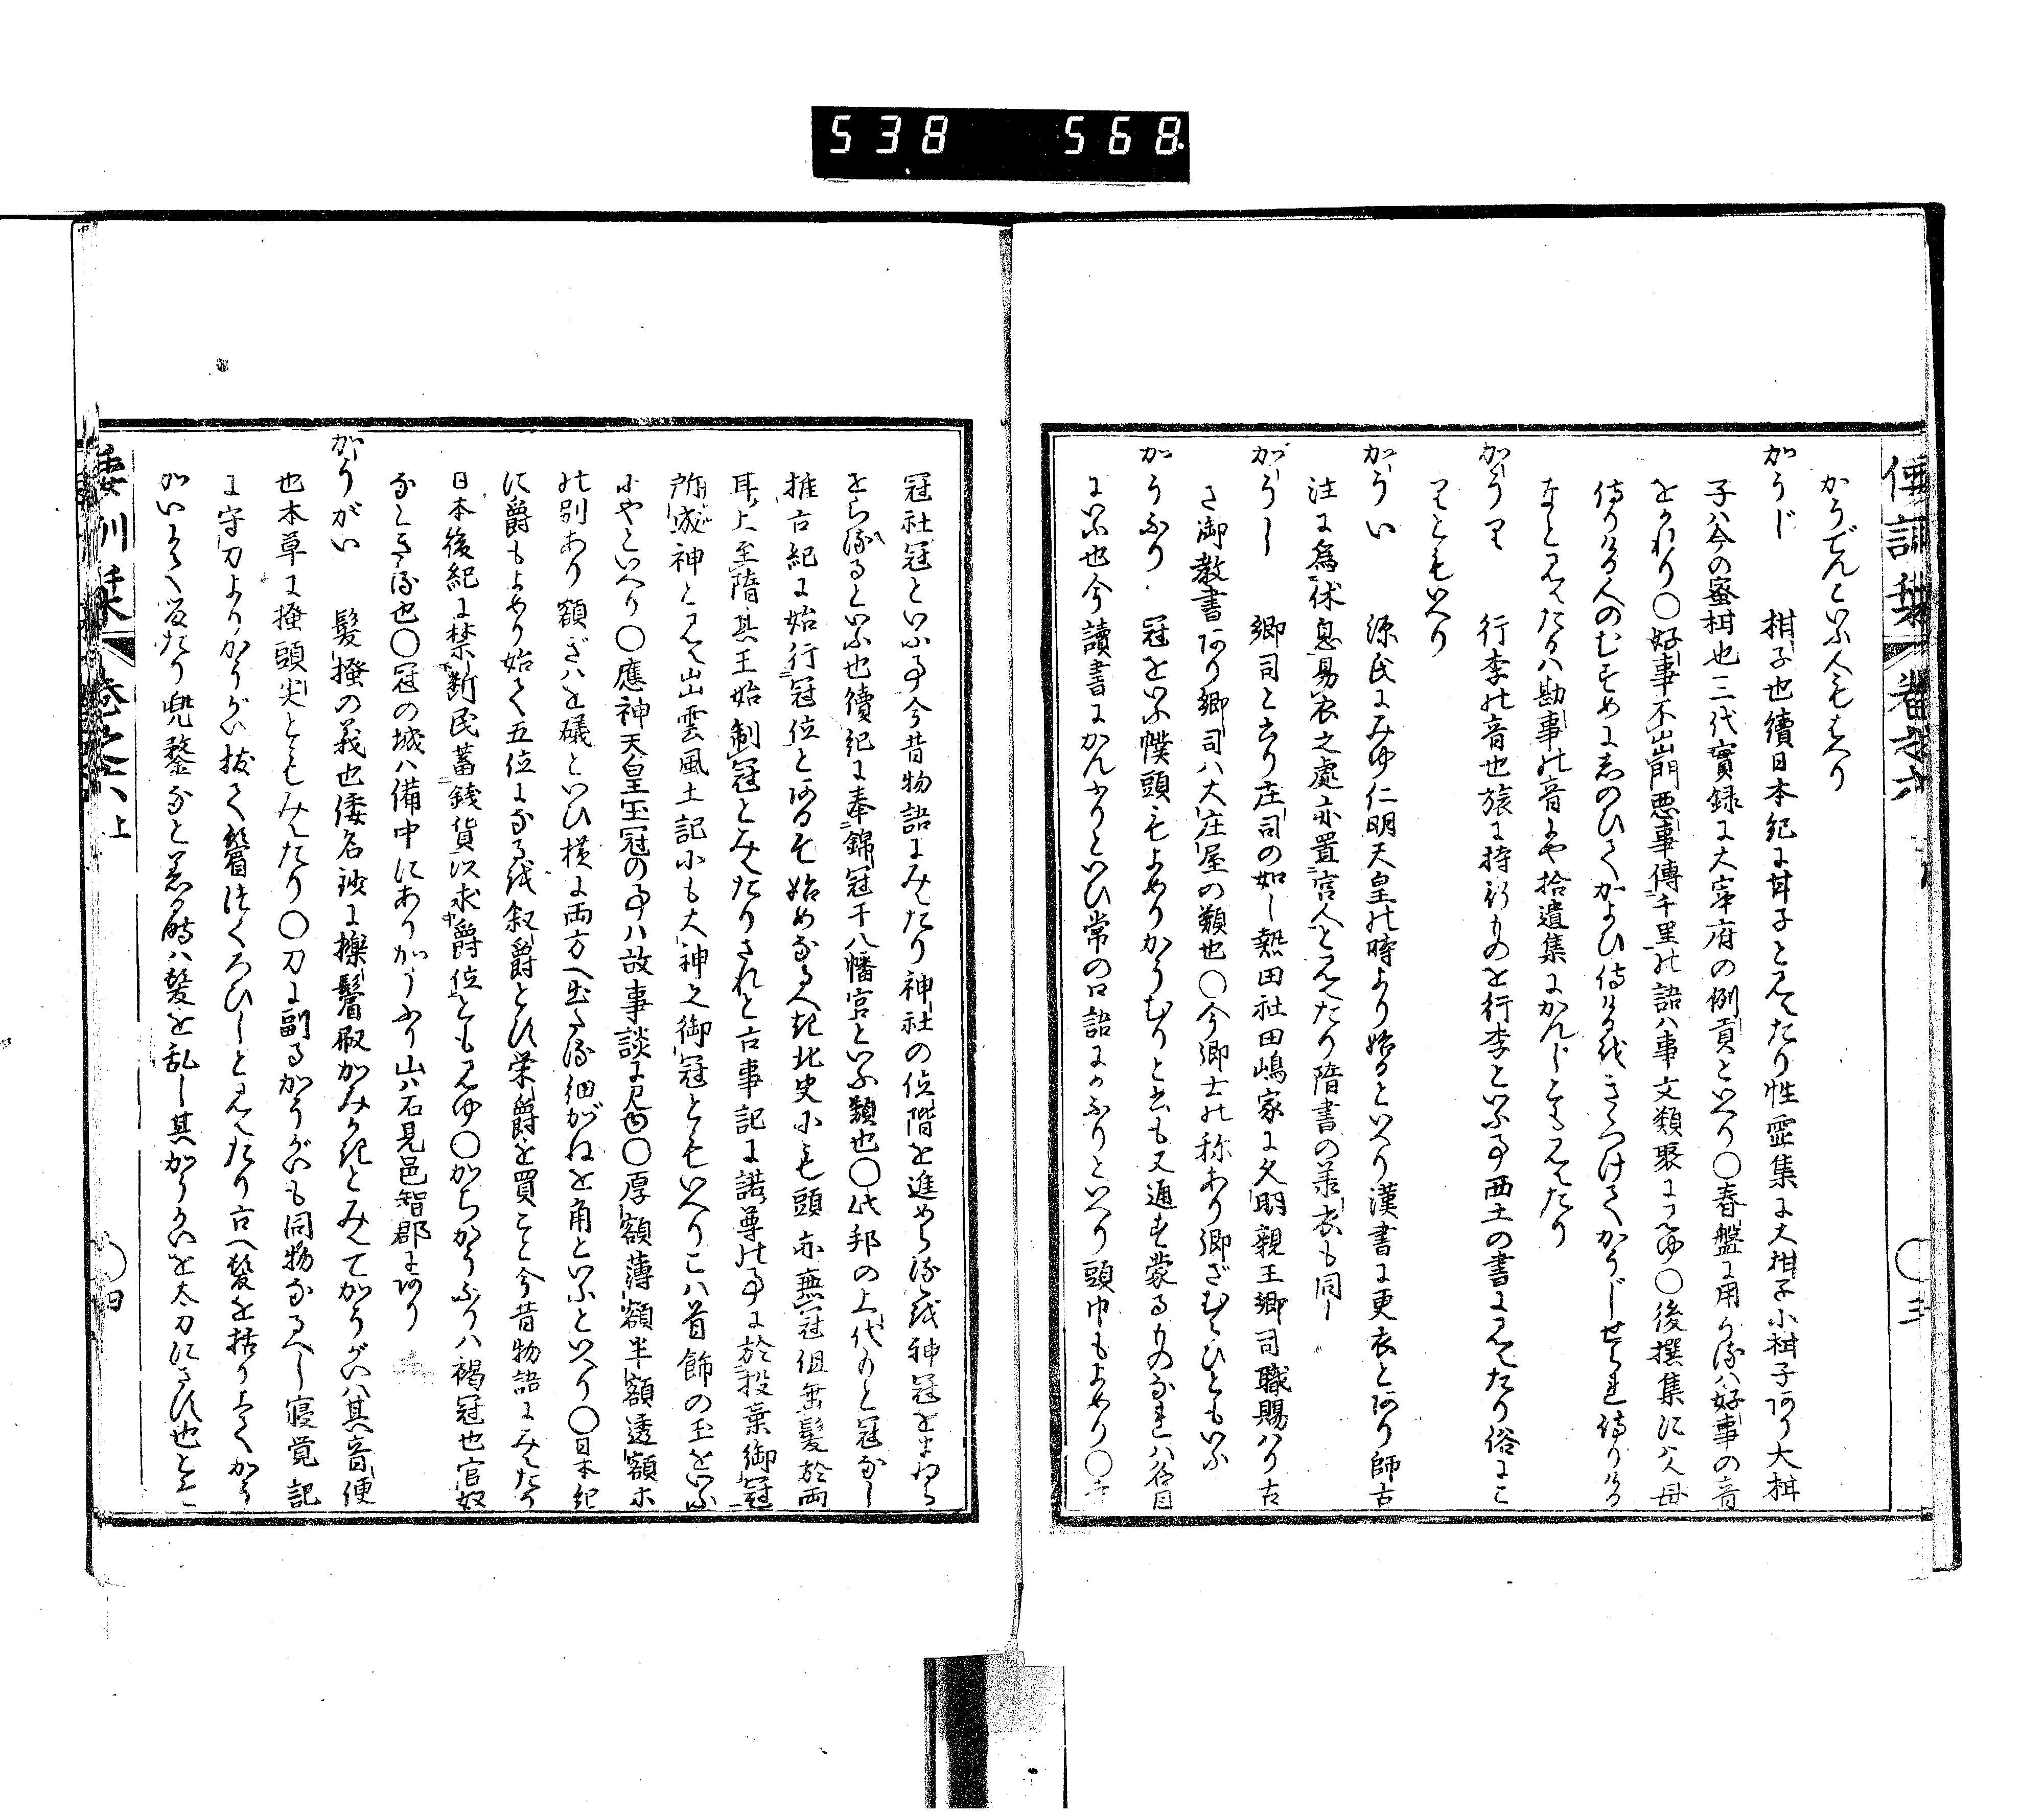 538 568
倭訓栞 巻之六 ○三
かうでんといふ人もあり
かうじ 柑子也續日本紀に甘子と見えたり性霊集に大柑子小柑子あり大柑
子ハ今の蜜柑也三代實録に大宰府の例貢といへり○春盤に用うるハ好事の音
をかれり○好事不出門悪事傳千里の語ハ事文類聚に見ゆ○後撰集に父母
侍りける人のむすめにしのひてかよひ侍けるをきゝつけてかうじせられ侍りける
なと見えたるハ勘事の音也や拾遺集にかんじとも見えたり
かうり 行李の音也旅に持行ものを行李といふ事西土の書に見えたり俗にこ
りともいへり
かうい 源氏にみゆ仁明天皇の時より始るといへり漢書に更衣とあり師古
注に為休息易衣之處亦置宮人と見えたり隋書の羕衣も同し
がうし 郷司と書り庄司の如し熱田社田嶋家に久明親王郷司職賜ハり古
き御教書あり郷司ハ大庄屋の類也○今郷士の称あり郷ざむらひともいふ
かうふり 冠をいふ幞頭もよめりかうむりと書も又通す蒙るものなれハ名目
にいふ也今讀書にかんふりといひ常の口語にかふりといへり頭巾もよめり○寺
冠社冠といふ事今昔物語にみえたり神社の位階を進めらるを神冠をまゐ
をらするといふ也續紀に奉錦冠于八幡宮といふ類也○此邦の上代のと冠なし
推古紀に始行冠位とあるそ始めなるへき北史にも頭亦無冠但垂髪於両
耳上至隋其王始制冠とみえたりされと古事記に諾尊の事に於投棄御冠
所成神と見え出雲風土記にも大神之御冠ともいへりこハ首飾の玉をいふ
にやといへり○應神天皇玉冠の事ハ故事談に見ゆ○厚額薄額半額透額ホ
の別あり額ぎハを礒といひ横に両方へ出たる細がねを角といふといへり○日本紀
に爵もよめり始て五位になるを叙爵とす栄爵を買こと今昔物語にみえたり
日本後紀に禁断民蓄銭貨以求爵位とも見ゆ○かちかうふりハ褐冠也官奴
なときる也○冠の城ハ備中にありかうふり山ハ石見邑智郡にあり
かうがい 髪掻の義也倭名鈔に擽鬢取かみかきとみえてかうがいハ其音便
也本草に掻頭尖ともみえたり○刀に副るかうがいも同物なるへし寝覚記
に守刀よりかうがい抜て鬢つくろひしと見えたり古へ髪を括り上てかう
がいをさしたり兜鍪なと着る時ハ髪を乱し其かうがいを太刀にさす也と云
倭訓栞 巻之六上 ○四